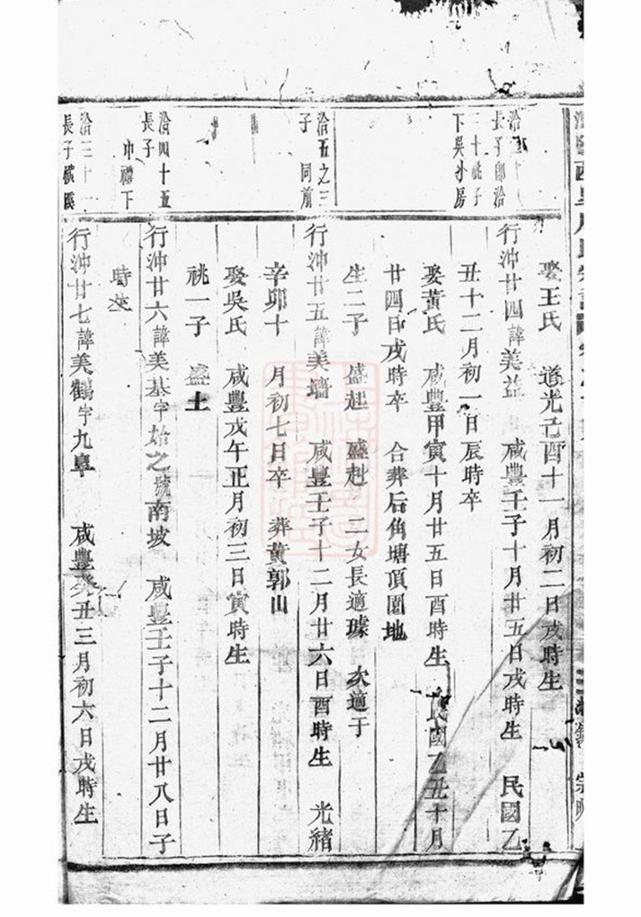 娶王氏 道光己酉十一月初二日戌時生
行沖廿四諱美益 咸豐壬子十月廿五日戌時生 民國乙
丑十二月初一日辰時卒
娶黃氏 咸豐甲寅十月廿五日酉時生 民國乙丑十月
廿四日戌時卒 合葬后角塘頂園地
生二子 盛起 盛赳 二女長適璩 次適于
洽五之三
子 同前
行沖廿五諱美墻 咸豐壬子十二月廿六日酉時生 光緒
辛卯十 月初七日卒 葬黃郭山
娶吳氏 咸豐戊午正月初三日寅時生
祧一子 盛土
洽四十五
長子
巾禮下
行沖廿六諱美基字始之號南坡 咸豐壬子十二月廿八日子
時生
洽三十一
長子橫溪
行沖廿七諱美鶴字九皐 咸豐癸丑三月初六日戌時生